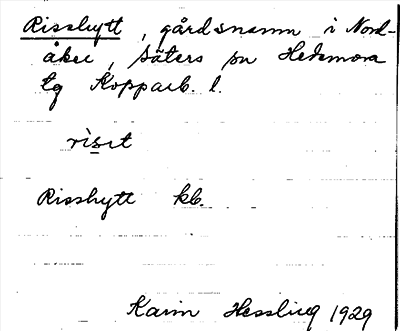 Risshytt, gårdsnamn i Nord-
åker, Säters sn Hedemora
tg Kopparb. l.
riset
Risshytt kb.
Karin Hessling 1929